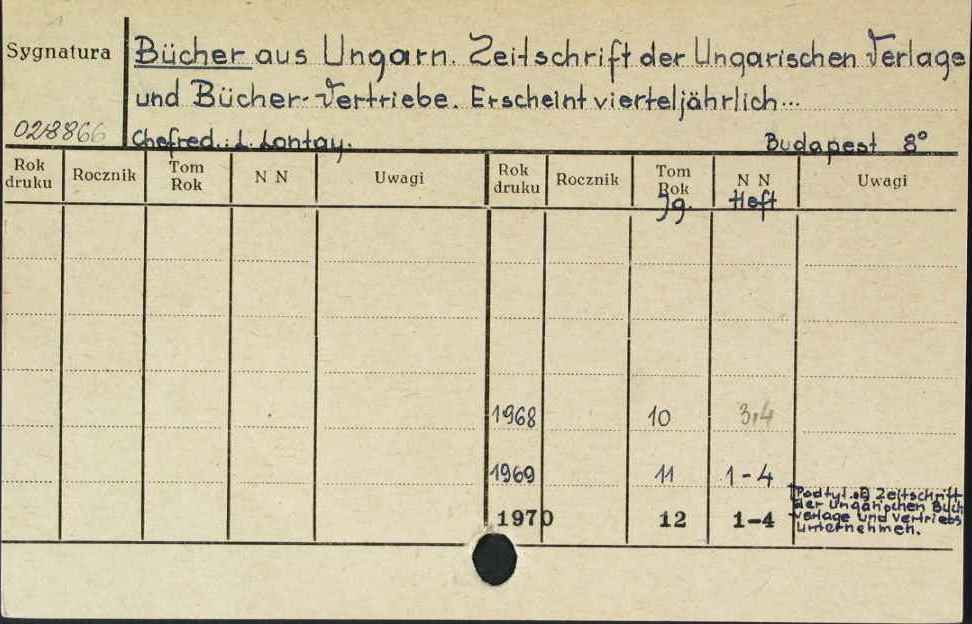 Sygnatura
Bücher aus Ungarn. Zeitschrift der Ungarischen Verlage
und Bücher-Vertriebe. Erscheint vierteljährlich...
028866
Chefred.: L. Lontay.
Budapest 8°
Rok druku Rocznik Tom Rok N N Uwagi Rok druku Rocznik Tom Rok N N Uwagi
Jg. Heft
1968 10 3,4
1969 11 1-4
1970 12 1-4
Podtyt. Zeitschrift
der Ungarischen Buch
verlage und Vertriebs
unternehmen.